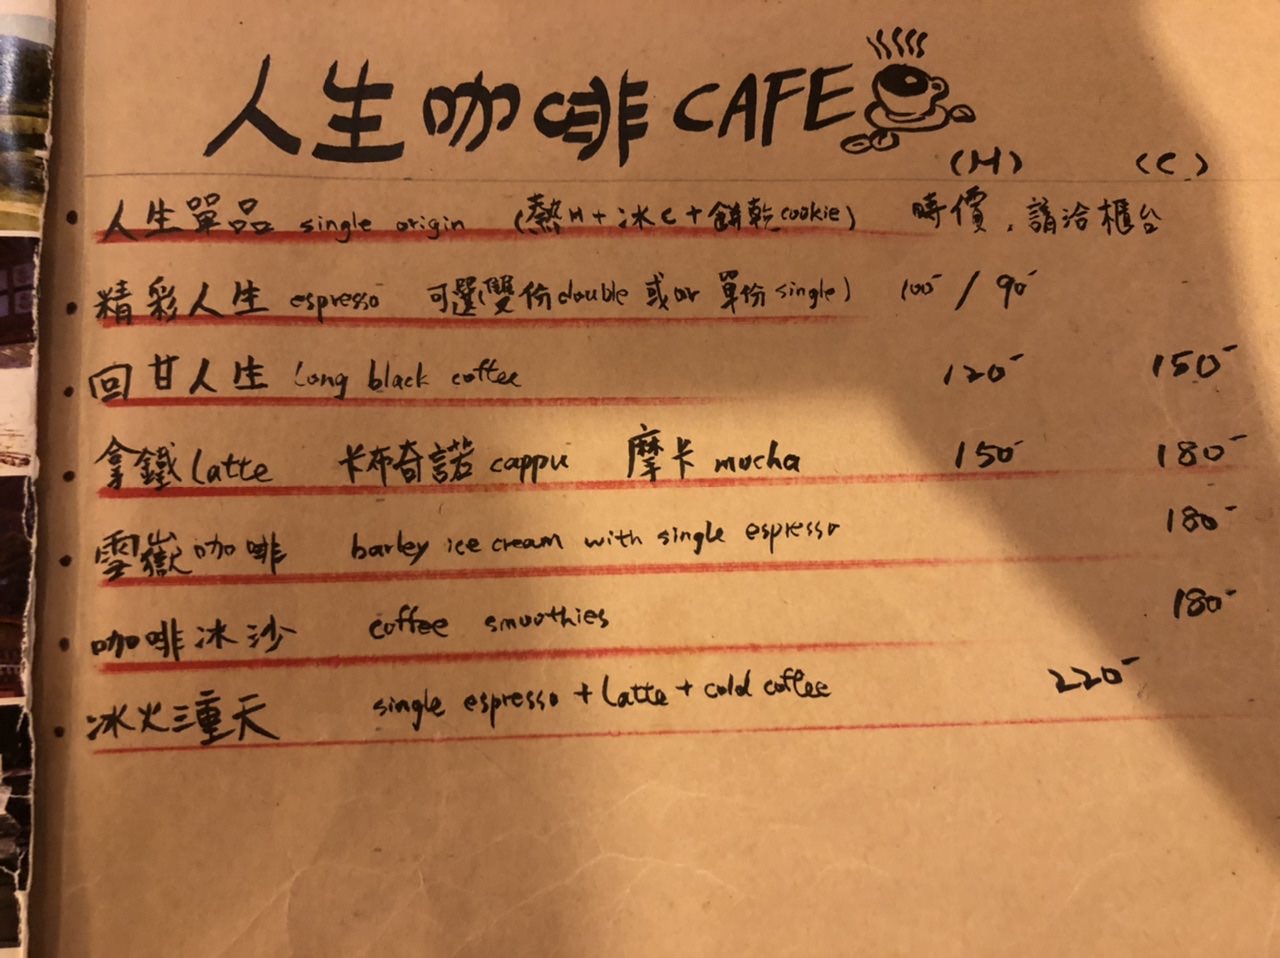 人生咖啡 CAFE
(H) (C)
人生單品 single origin (熱H+冰C+餅乾cookie) 時價，請洽櫃台
精彩人生 espresso 可選(雙份double 或or 單份single) 100- / 90-
回甘人生 long black coffee 120- 150-
拿鐵Latte 卡布奇諾cappu 摩卡mocha 150- 180-
雪嶽咖啡 barley ice cream with single espresso 180-
咖啡冰沙 coffee smoothies 180-
冰火三重天 single espresso + Latte + cold coffee 220-